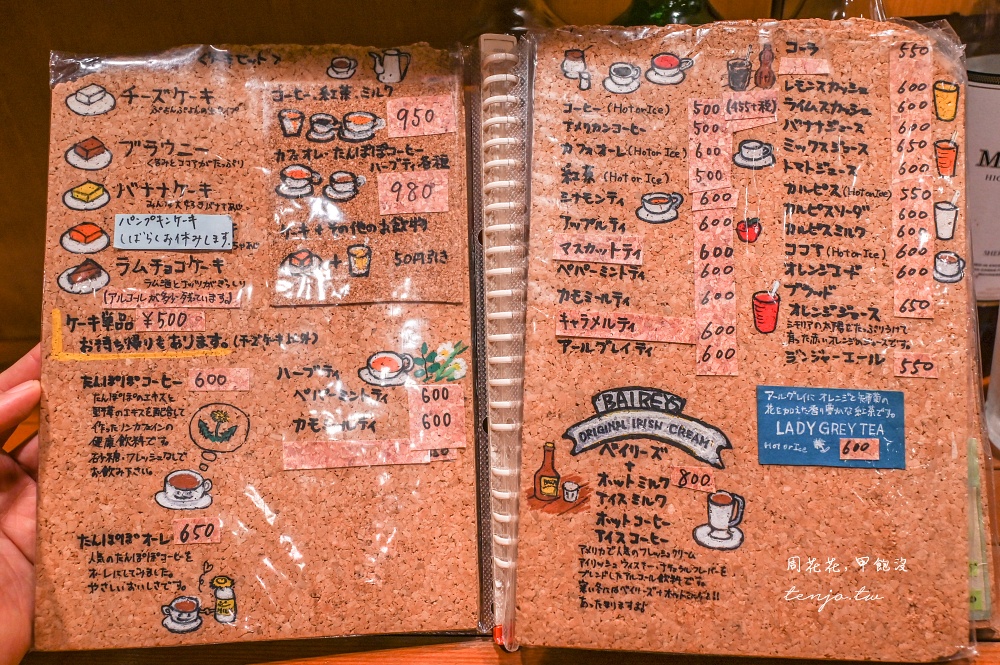 チーズケーキ
ブラウニー
くるみとココアがたっぷり
バナナケーキ
パンプキンケーキ
しばらくお休みします。
ラムチョコケーキ
ラム酒とナッツがぎっしり
(アルコールが多少残っています。)
ケーキ単品 ¥500
お持ち帰りもあります。(チーズケーキ以外)
たんぽぽコーヒー 600
たんぽぽのエキスと
野草のエキスを配合して
作ったノンカフェインの
健康飲料です。
砂糖・フレッシュなしで
お飲み下さい。
たんぽぽオーレ 650
人気のたんぽぽコーヒーを
オーレにしてみました。
やさしいおいしさです。
コーヒー、紅茶、ミルク
950
カフェオレ・たんぽぽコーヒー
ハーブティ各種
980
ケーキ+その他のお飲物
50円引き
ハーブティ
ペパーミントティ 600
カモミールティ 600
コーヒー (Hot or Ice) 500 (税込)
アメリカンコーヒー 500
カフェオーレ (Hot or Ice) 600
紅茶 (Hot or Ice) 500
シナモンティ 600
アップルティ 600
マスカットティ 600
ペパーミントティ 600
カモミールティ 600
キャラメルティ 600
アールグレイティ 600
コーラ 550
レモンスカッシュ 600
ライムスカッシュ 600
バナナジュース 600
ミックスジュース 650
トマトジュース 600
カルピス (Hot or Ice) 550
カルピスソーダ 600
カルピスミルク 600
ココア (Hot or Ice) 600
オレンジエード 600
ブラッド
オレンジジュース 650
シチリアの太陽をたっぷりうけて
育った赤いオレンジのジュースです。
ジンジャーエール 550
BAILEYS
ORIGINAL IRISH CREAM
ベイリーズ
+
ホットミルク 800
アイスミルク
ホットコーヒー
アイスコーヒー
アメリカで人気のフレッシュクリーム
アイリッシュウイスキー・ナチュラルフレーバーを
ブレンドしたアルコール飲料です。
寒い冬にはベイリーズ+ホットミルクを!!
あったまりますよ♪
アールグレイにオレンジと矢車菊の
花を加えた香り豊かな紅茶です。
LADY GREY TEA
Hot or Ice 600
周花花,甲飽沒
tenjo.tw